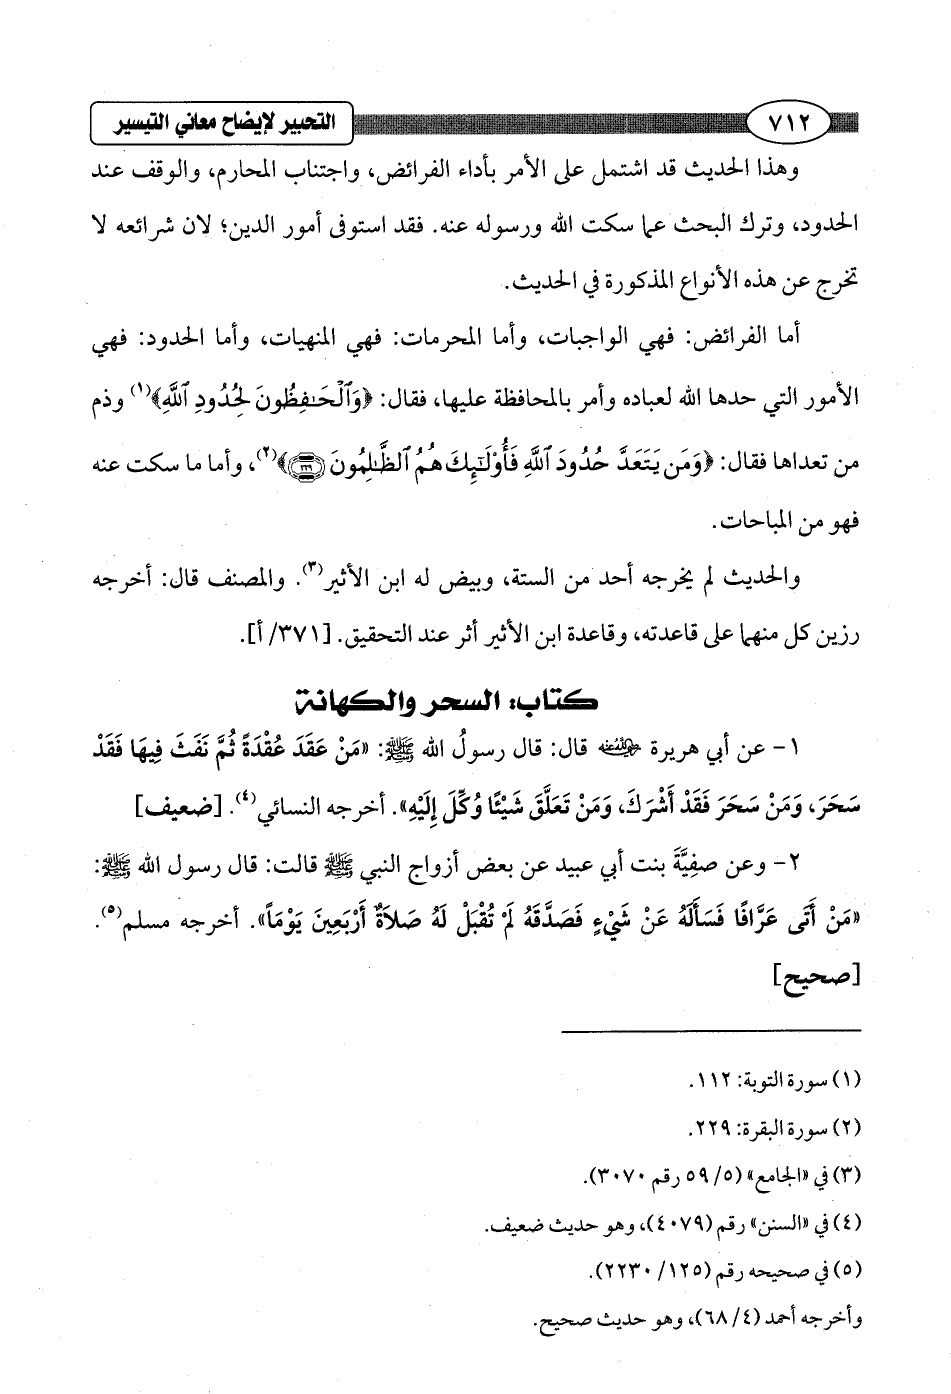 ٧١٢ التحبير لإيضاح معاني التيسير
وهذا الحديث قد اشتمل على الأمر بأداء الفرائض، واجتناب المحارم، والوقف عند
الحدود، وترك البحث عما سكت الله ورسوله عنه. فقد استوفى أمور الدين؛ لان شرائعه لا
تخرج عن هذه الأنواع المذكورة في الحديث.
أما الفرائض: فهي الواجبات، وأما المحرمات: فهي المنهيات، وأما الحدود: فهي
الأمور التي حدها الله لعباده وأمر بالمحافظة عليها، فقال: ﴿وَٱلْحَـٰفِظُونَ لِحُدُودِ ٱللَّهِ﴾(١) وذم
من تعداها فقال: ﴿وَمَن يَتَعَدَّ حُدُودَ ٱللَّهِ فَأُو۟لَـٰٓئِكَ هُمُ ٱلظَّـٰلِمُونَ ﴿٢٢٩﴾﴾(٢)، وأما ما سكت عنه
فهو من المباحات.
والحديث لم يخرجه أحد من الستة، وبيض له ابن الأثير(٣). والمصنف قال: أخرجه
رزين كل منهما على قاعدته، وقاعدة ابن الأثير أثر عند التحقيق. [٣٧١/ أ].
كتاب: السحر والكهانة
١- عن أبي هريرة رضي الله عنه قال: قال رسولُ الله ﷺ: «مَنْ عَقَدَ عُقْدَةً ثُمَّ نَفَثَ فِيهَا فَقَدْ
سَحَرَ، وَمَنْ سَحَرَ فَقَدْ أَشْرَكَ، وَمَنْ تَعَلَّقَ شَيْئًا وُكِّلَ إِلَيْهِ». أخرجه النسائي(٤). [ضعيف]
٢- وعن صفِيَّةَ بنت أبي عبيد عن بعض أزواج النبي ﷺ قالت: قال رسول الله ﷺ:
«مَنْ أَتَى عَرَّافًا فَسَأَلَهُ عَنْ شَيْءٍ فَصَدَّقَهُ لَمْ تُقْبَلْ لَهُ صَلاَةٌ أَرْبَعِينَ يَوْمَاً». أخرجه مسلم(٥).
[صحيح]
(١) سورة التوبة: ١١٢.
(٢) سورة البقرة: ٢٢٩.
(٣) في «الجامع» (٥/ ٥٩ رقم ٣٠٧٠).
(٤) في «السنن» رقم (٤٠٧٩)، وهو حديث ضعيف.
(٥) في صحيحه رقم (١٢٥/ ٢٢٣٠).
وأخرجه أحمد (٤/ ٦٨)، وهو حديث صحيح.